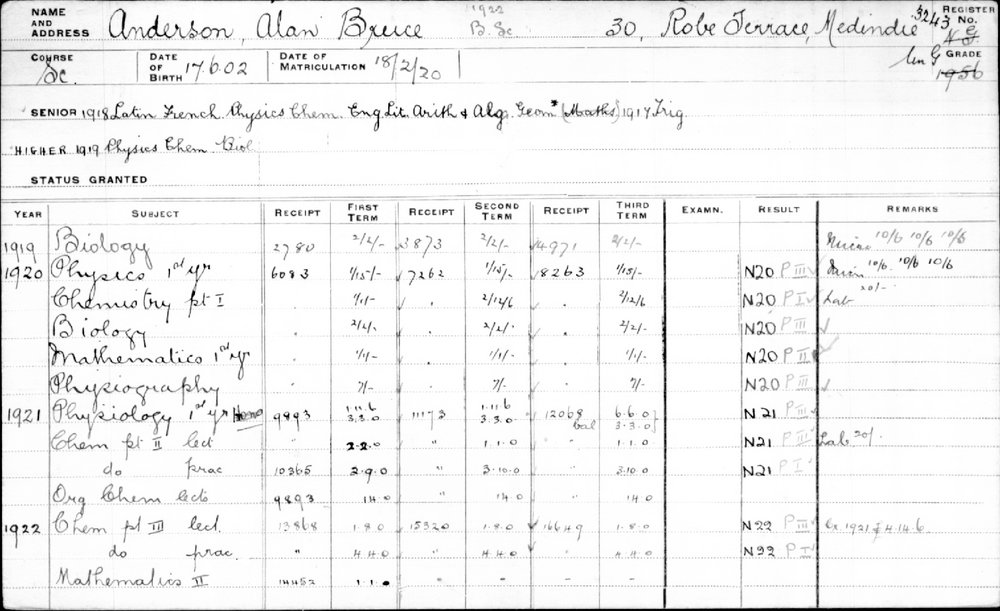 NAME AND ADDRESS Anderson, Alan Bruce 1922 B. Sc 30, Robe Terrace, Medindie 3243 REGISTER No.
COURSE Sc. DATE OF BIRTH 17.6.02 DATE OF MATRICULATION 18/2/20 Un G GRADE 1956
SENIOR 1918 Latin French Physics Chem. Eng Lit. Arith & Alg. Geom * (Maths) 1917 Trig
HIGHER 1919 Physics Chem. Biol
STATUS GRANTED
YEAR SUBJECT RECEIPT FIRST TERM RECEIPT SECOND TERM RECEIPT THIRD TERM EXAMN. RESULT REMARKS
1919 Biology 2780 2/2/- 3873 2/2/- 4971 2/2/- Micro 10/6 10/6 10/6
1920 Physics 1st yr 6083 1/15/- 7262 1/15/- 8263 1/15/- N20 P III 10/6 10/6 10/6
Chemistry pt I 1/1/- 2/12/6 2/12/6 N20 P I Lab 20/-
Biology 2/2/- 2/2/- 2/2/- N20 P III
Mathematics 1st yr 1/1/- 1/1/- 1/1/- N20 P II
Physiography 7/- 7/- 7/- N20 P III
1921 Physiology 1st yr 9893 1.11.6 3.3.0 11173 1.11.6 3.3.0 12068 bal 6.6.0 3.3.0 N21 P III
Chem pt II lect " 2.2.0 " 1.1.0 " 1.1.0 N21 P III Lab 20/-
do prac 10365 2.9.0 " 3.10.0 " 3.10.0 N21 P I
Org Chem lects 9893 14.0 14.0 14.0
1922 Chem pt III lect. 13868 1.8.0 15320 1.8.0 16649 1.8.0 N22 P III Cr. 1921 £4.14.6
do prac. " 4.4.0 " 4.4.0 " 4.4.0 N22 P I
Mathematics II 14452 1.1.0 - - -